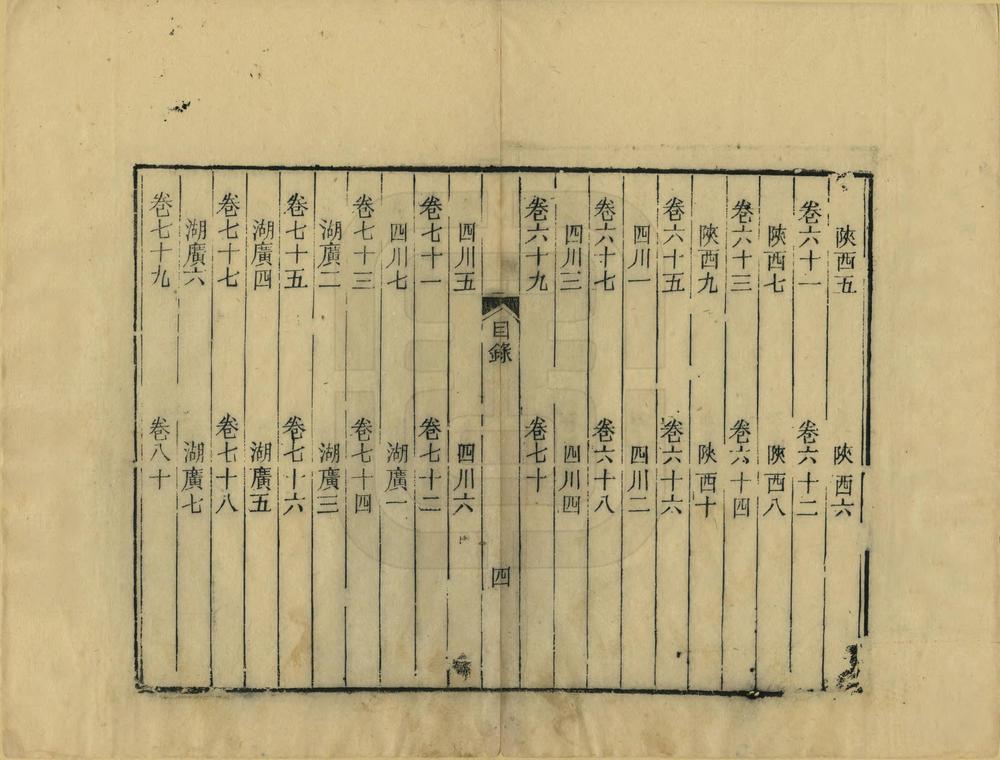 陝西五　陝西六
卷六十一　卷六十二
陝西七　陝西八
卷六十三　卷六十四
陝西九　陝西十
卷六十五　卷六十六
四川一　四川二
卷六十七　卷六十八
四川三　四川四
卷六十九　卷七十
目錄　四
四川五　四川六
卷七十一　卷七十二
四川七　湖廣一
卷七十三　卷七十四
湖廣二　湖廣三
卷七十五　卷七十六
湖廣四　湖廣五
卷七十七　卷七十八
湖廣六　湖廣七
卷七十九　卷八十